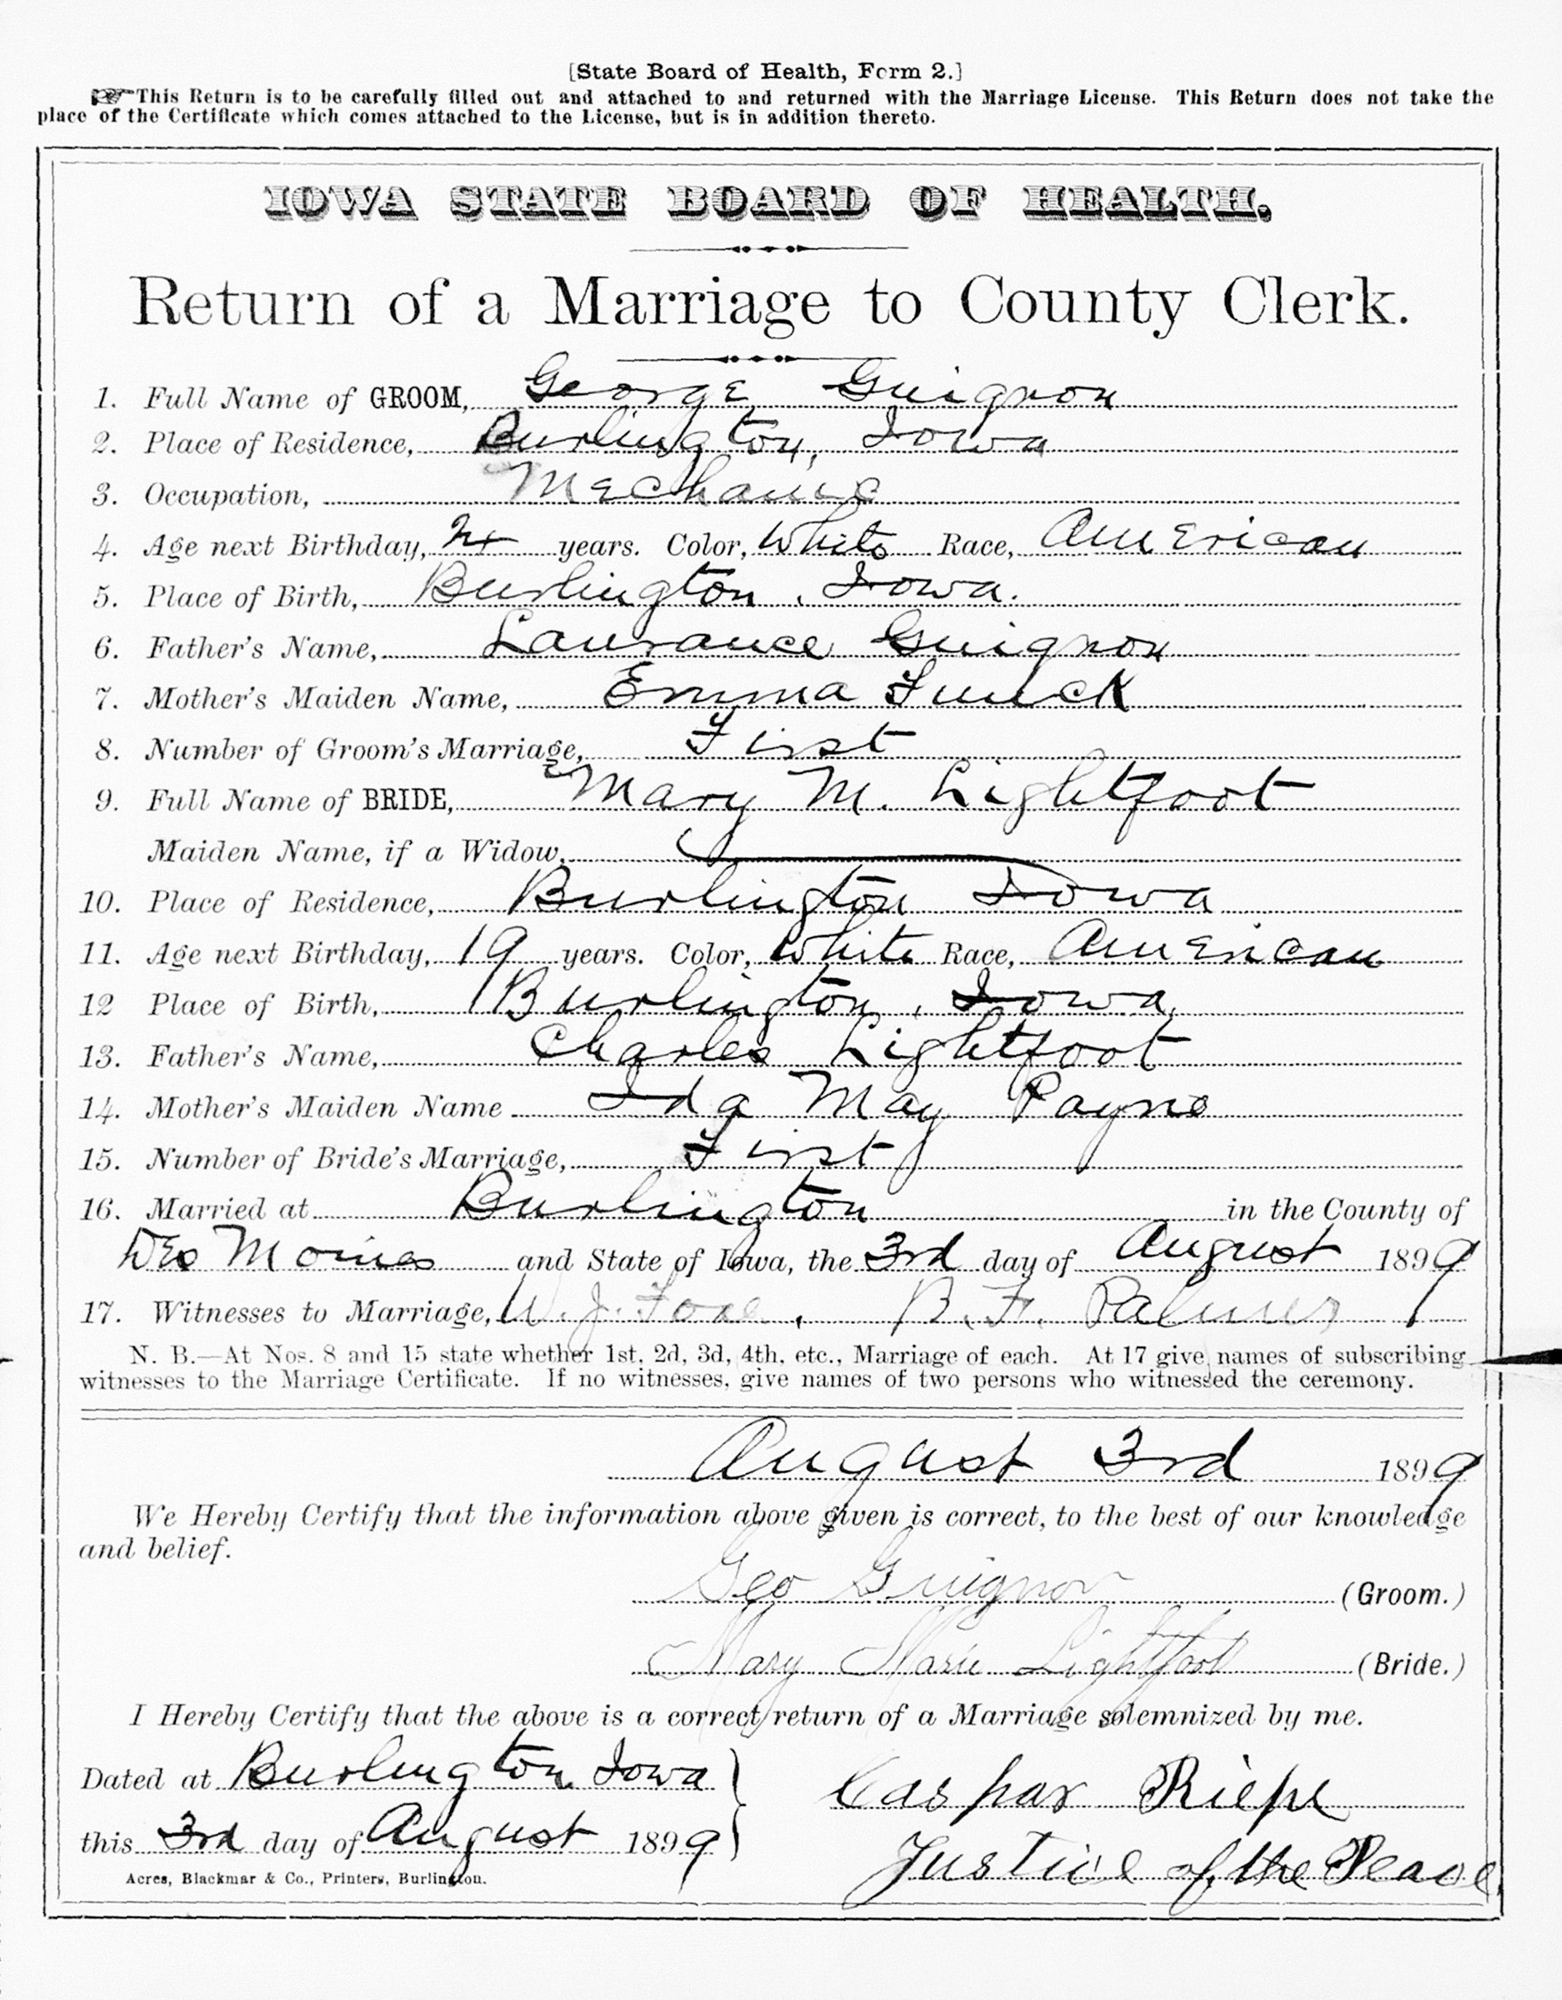 [State Board of Health, Form 2.]
This Return is to be carefully filled out and attached to and returned with the Marriage License. This Return does not take the
place of the Certificate which comes attached to the License, but is in addition thereto.
IOWA STATE BOARD OF HEALTH.
Return of a Marriage to County Clerk.
1. Full Name of GROOM, George Guignon
2. Place of Residence, Burlington, Iowa
3. Occupation, Mechanic
4. Age next Birthday, years. Color, White Race, American
5. Place of Birth, Burlington, Iowa.
6. Father's Name, Laurance Guignon
7. Mother's Maiden Name, Emma Funck
8. Number of Groom's Marriage, First
9. Full Name of BRIDE, Mary M. Lightfoot
Maiden Name, if a Widow,
10. Place of Residence, Burlington Iowa
11. Age next Birthday, 19 years. Color, White Race, American
12 Place of Birth, Burlington, Iowa,
13. Father's Name, Charles Lightfoot
14. Mother's Maiden Name Ida May Payne
15. Number of Bride's Marriage, First
16. Married at Burlington in the County of
Des Moines and State of Iowa, the 3rd day of August 1899
17. Witnesses to Marriage, W. J. B. F. Palmer
N. B.—At Nos. 8 and 15 state whether 1st, 2d, 3d, 4th, etc., Marriage of each. At 17 give names of subscribing
witnesses to the Marriage Certificate. If no witnesses, give names of two persons who witnessed the ceremony.
August 3rd 1899
We Hereby Certify that the information above given is correct, to the best of our knowledge
and belief.
Geo Guignon (Groom.)
Mary Marie Lightfoot (Bride.)
I Hereby Certify that the above is a correct return of a Marriage solemnized by me.
Dated at Burlington Iowa
this 3rd day of August 1899
Caspar Riepe
Justice of the Peace,
Acres, Blackmar & Co., Printers, Burlington.